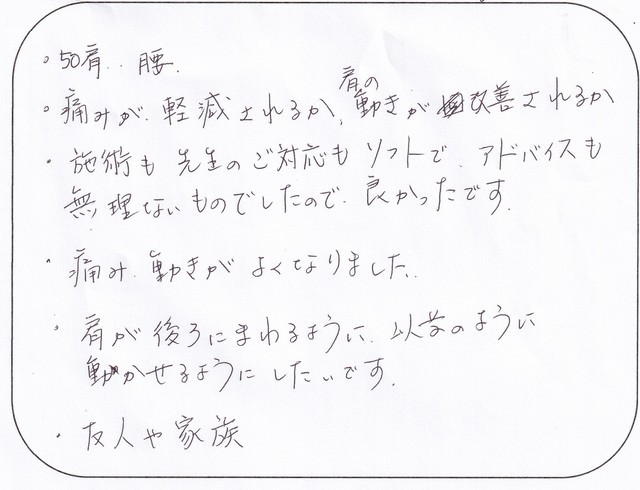 ・50肩．腰．
・痛みが．軽減されるか、肩の動きが改善されるか
・施術も 先生のご対応も ソフトで．アドバイスも
無理ないものでしたので．良かったです．
・痛み．動きが よくなりました．
・肩が後ろにまわるように．以前のように
動かせるようにしたいです．
・友人や家族